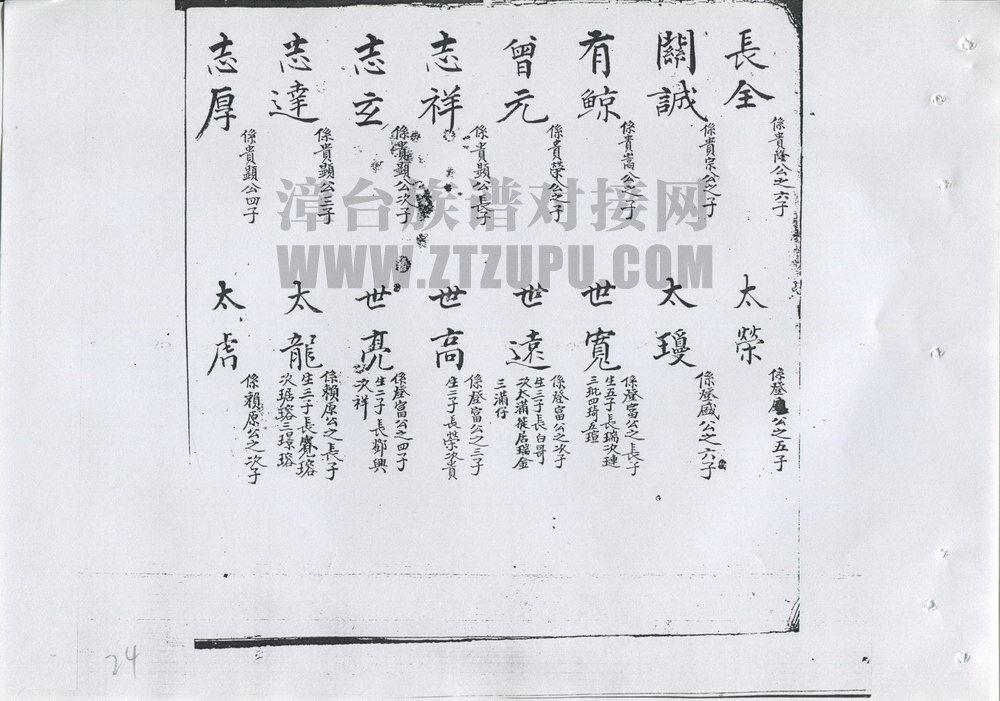 長全
係貴隆公之六子
關誠
係貴宗公之子
有鯨
係貴嵩公之子
曾元
係貴榮公之子
志祥
係貴顯公長子
志玄
係貴顯公次子
志達
係貴顯公三子
志厚
係貴顯公四子
太榮
係登公之五子
太瓊
係登盛公之六子
世寬
係登富公之長子
生五子長瑞次璉
三玭四琦五瑄
世遠
係登富公之次子
生三子長白哥
次太蒲徙居瑞金
三滿仔
世高
係登富公之三子
生二子長榮次貴
世亮
係登富公之四子
生二子長鄒興
次祥
太龍
係賴原公之長子
生三子長寬瑢
次琚瑢三璟瑢
太虎
係賴原公之次子
漳台族谱对接网
WWW.ZTZUPU.COM
24